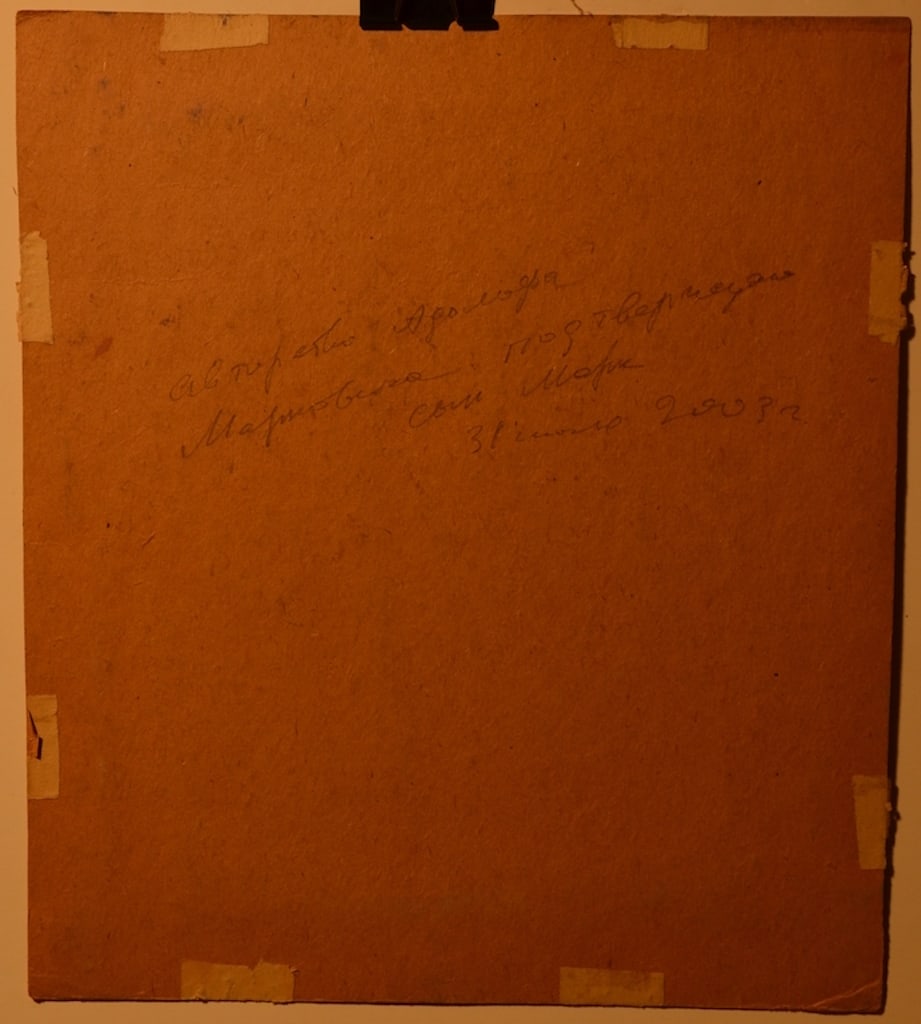 авторство Адольфа
Марковича подтверждаю
сын Марк
31 июля 2003 г